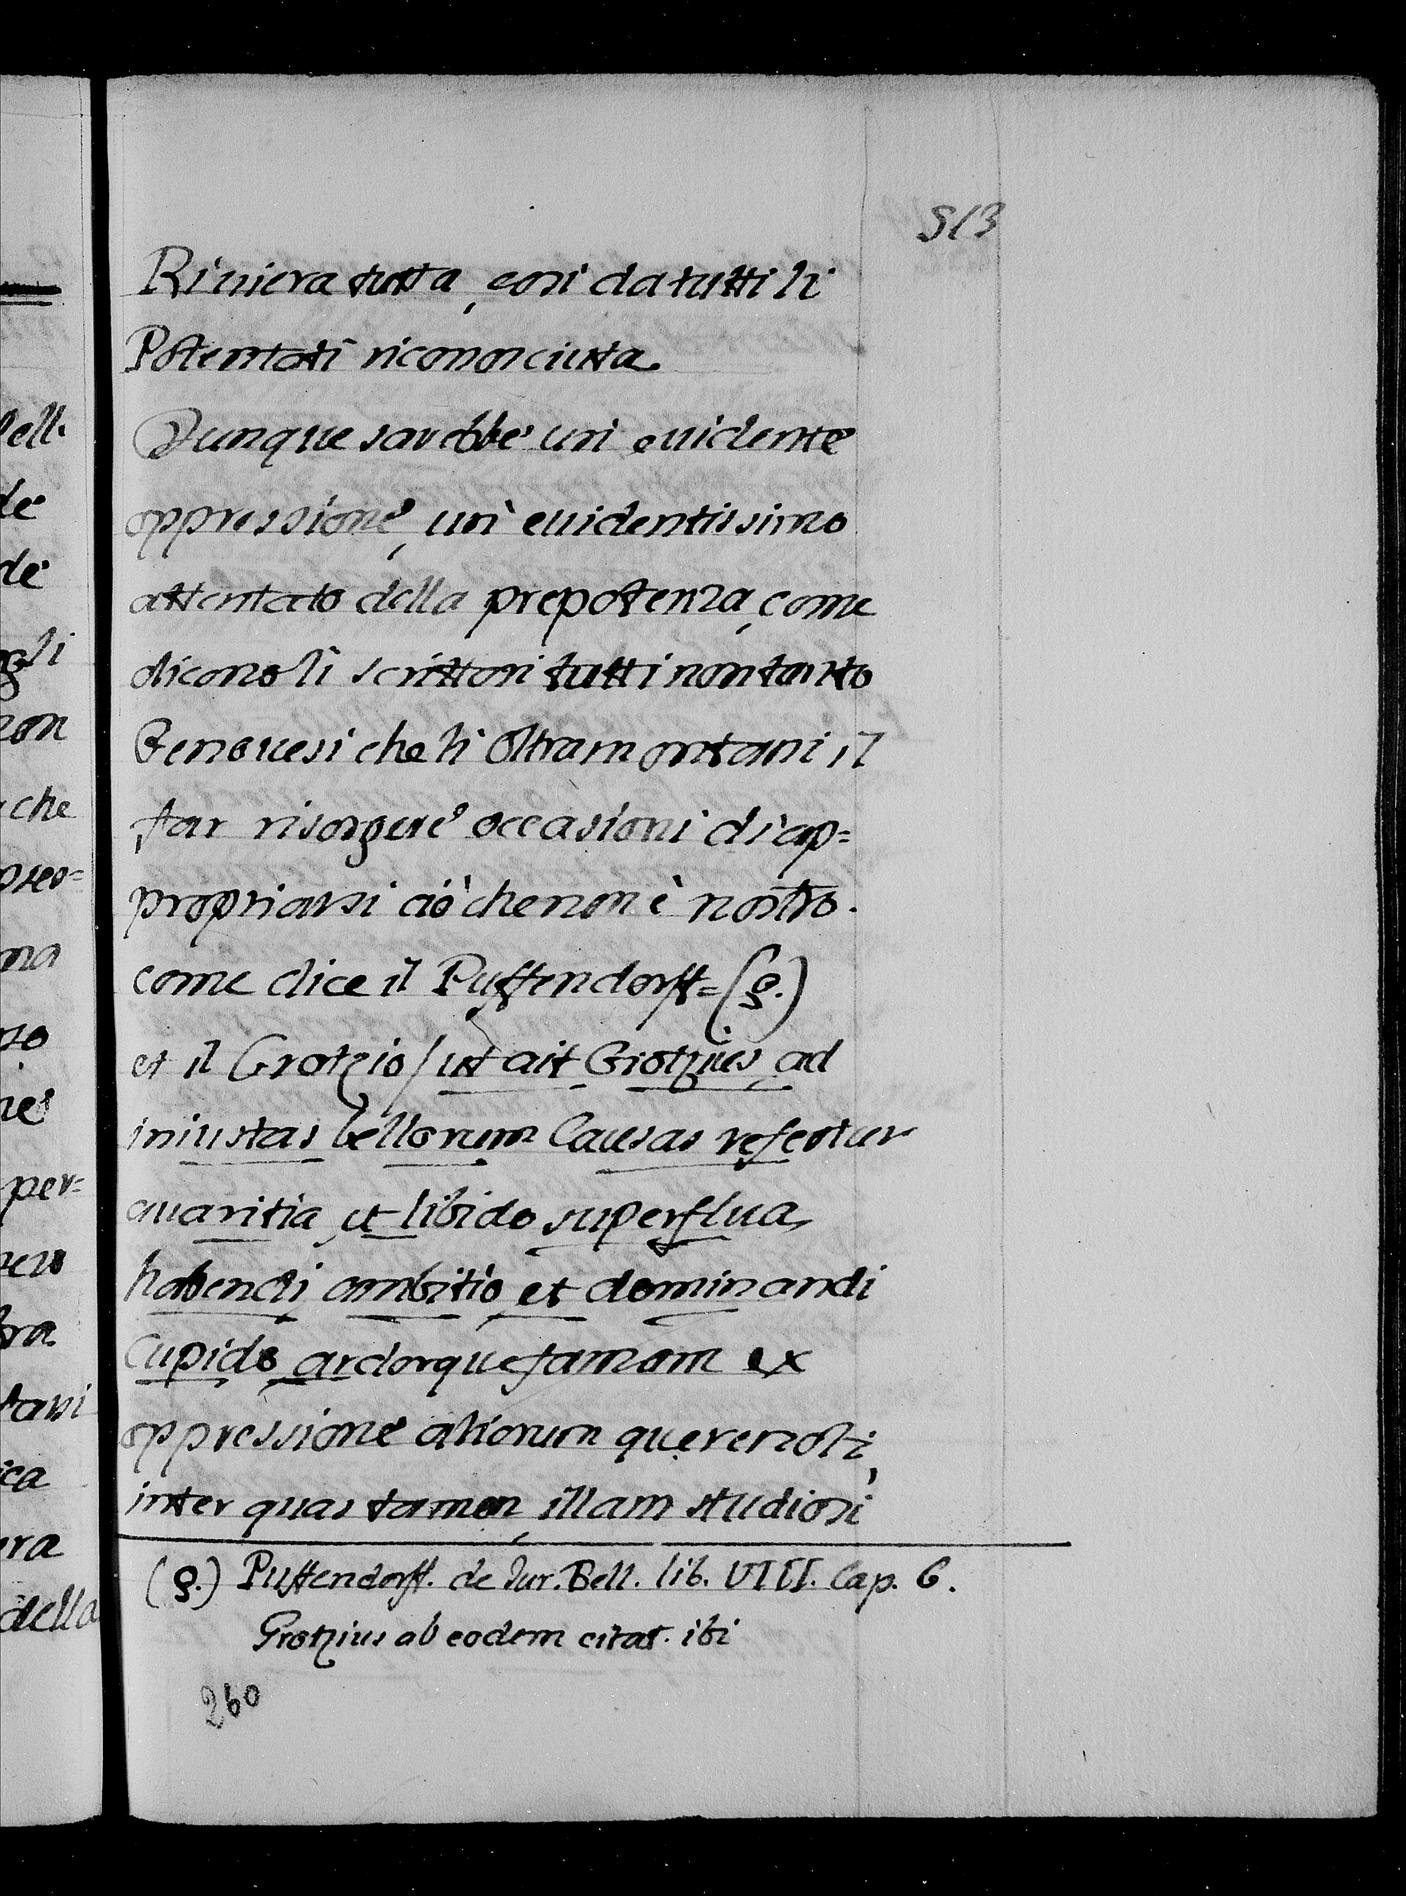 513
Riviera tutta, cosi da tutti li
Potentati riconosciuta.
Dunque sarebbe un evidente
oppressione, un evidentissimo
attentato della prepotenza, come
dicono li scrittori tutti non tanto
Genovesi che li Oltramontani il
far risorgere occasioni di ap=
propriarsi ciò che non è nostro.
come dice il Puffendorff= (g.)
et il Grotzio / ut ait Grotzius, ad
iniustas bellorum Causas refertur
avaritia, et libido superflua,
habendi ambitio, et dominandi
Cupido, ardorque famam ex
oppressione aliorum querendi,
inter quas tamen, illam studiosi
(g.) Puffendorff. de Iur. Bell. lib. VIII. Cap. 6.
Grotzius ab eodem citat. ibi
260